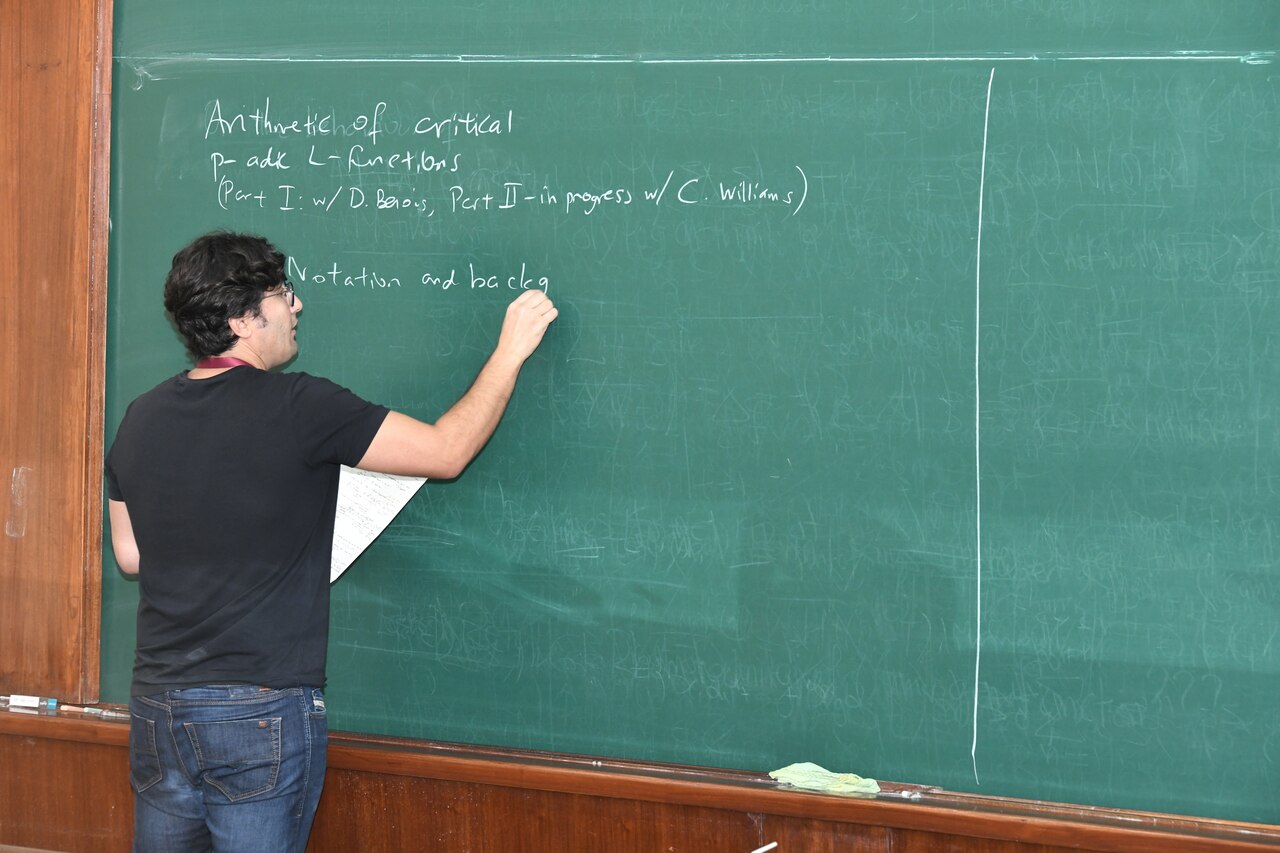 Arithmetic of critical
p-adic L-functions
(Part I: w/ D. Benois, Part II - in progress w/ C. Williams)
Notation and backg